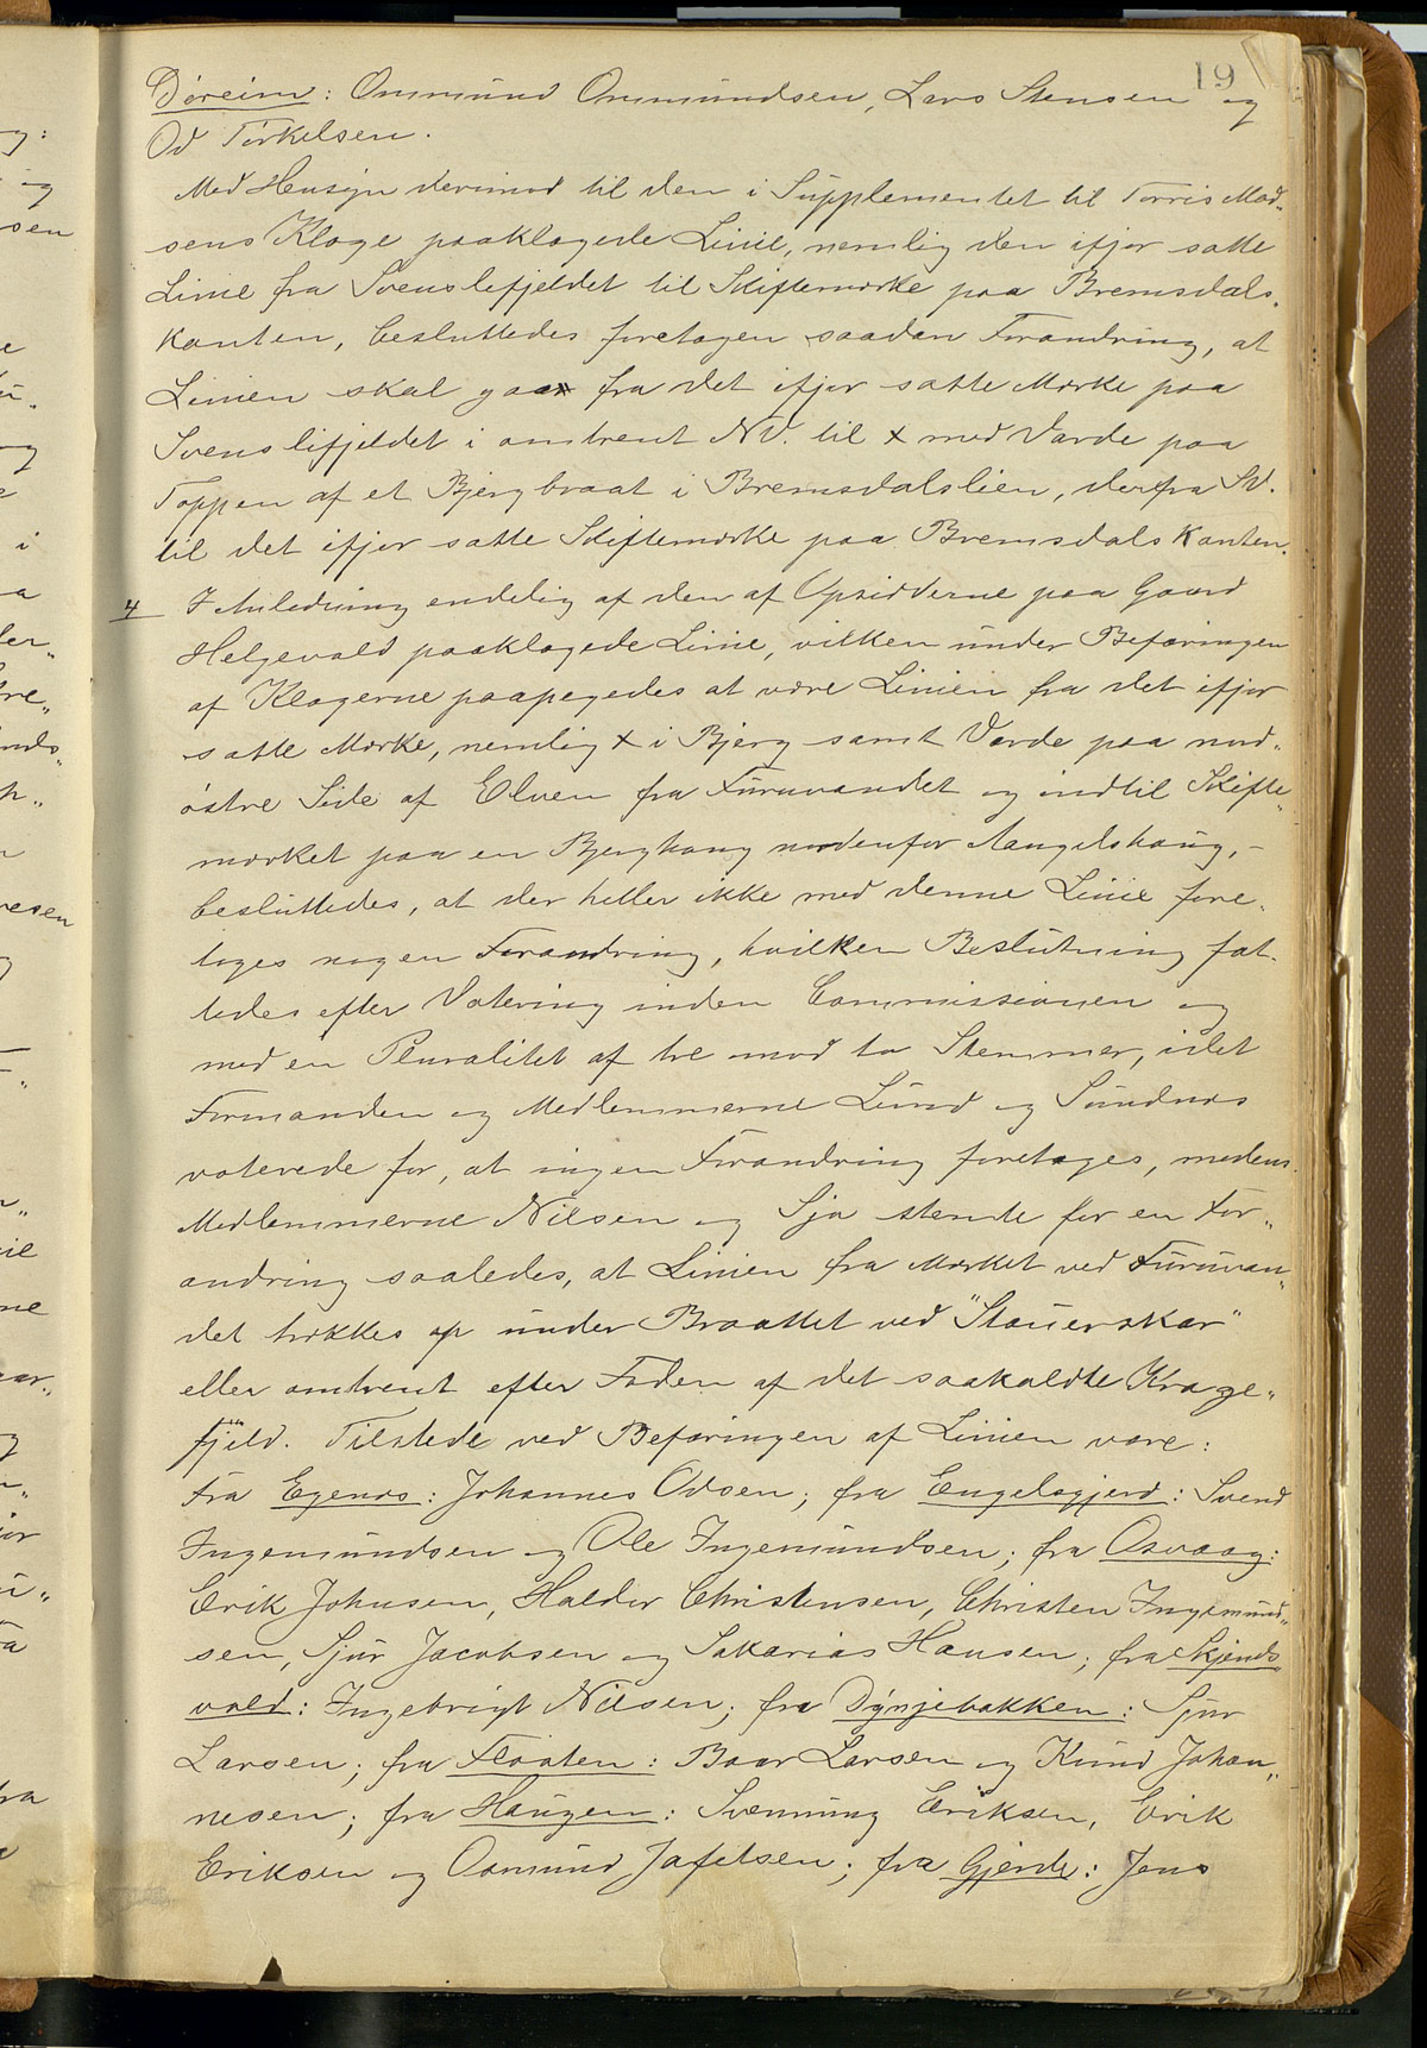 19
Döreim: Ommund Ommundsen, Lars Stensen og
Od Torkelsen.
Med Hensyn derimod til den i Supplementet til Torris Mad„
sens Klage paaklagede Linie, nemlig den ifjor satte
Linie fra Svenslefjeldet til Skiftemærke paa Bremsdals„
kanten, besluttedes foretagen saadan Forandring, at
Linien skal gaa fra det ifjor satte Mærke paa
Svenslifjeldet i omtrent NV. til x med Varde paa
Toppen af et Bjergbraat i Bremsdalslien, derfra SV.
til det ifjor satte Skiftemærke paa Bremsdalskanten.
4 I Anledning endelig af den af Opsidderne paa Gaard
Helgevold paaklagede Linie, vilken under Befaringen
af Klagerne paapegedes at være Linien fra det ifjor
satte Mærke, nemlig x i Bjerg samt Varde paa nord„
östre Side af Elven fra Furuvandet og indtil Skifte„
mærket paa en Bjerghaug nordenfor Aangelshaug, -
besluttedes, at der heller ikke med denne Linie fore„
toges nogen Forandring, hvilken Beslutning fat„
tedes efter Votering inden Commissionen og
med en Pluralitet af tre mod to Stemmer, idet
Formanden og Medlemmerne Lund og Sundnæs
voterede for, at ingen Forandring foretages, medens
Medlemmerne Nilsen og Sjo stemte for en For„
andring saaledes, at Linien fra Mærket ved Furuvan„
det trækkes op under Braattet ved "Stauerskar"
eller omtrent efter Foden af det saakaldte Krage„
fjeld. Tilstede ved Befaringen af Linien vare:
Fra Egenæs: Johannes Odsen; fra Engelsgjerd: Svend
Ingemundsen og Ole Ingemundsen; fra Osvaag:
Erik Johnsen, Haldor Christensen, Christen Ingemund„
sen, Sjur Jacobsen og Sakarias Hansen; fra Skjends„
vold: Ingebrigt Nilsen; fra Dynjebakken: Sjur
Larsen; fra Flaaten: Baar Larsen og Knud Johan„
nesen; fra Haugen: Svenning Eriksen, Erik
Eriksen og Osmund Jafetsen; fra Gjerde: Jens